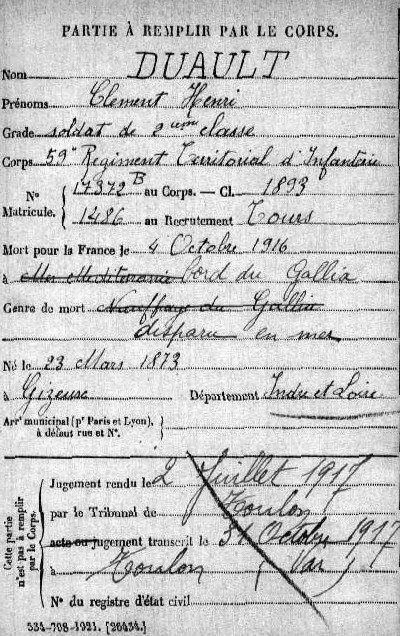 PARTIE À REMPLIR PAR LE CORPS.
Nom DUAULT
Prénoms Clement Henri
Grade soldat de 2ieme classe
Corps 59e Regiment Territorial d'Infanterie
N° Matricule. { 17372 B au Corps. — Cl. 1893
1486 au Recrutement Tours
Mort pour la France le 4 Octobre 1916
à Mer Mediterranée bord du Gallia
Genre de mort Naufrage du Gallia
disparu en mer
Né le 23 Mars 1873
à Gizeuse Département Indre et Loire
Arrt municipal (pr Paris et Lyon), à défaut rue et N°. }
Cette partie n'est pas à remplir par le Corps. {
Jugement rendu le 2 Juillet 1917
par le Tribunal de Toulon
acte ou jugement transcrit le 31 Octobre 1917
à Toulon (Var)
N° du registre d'état civil
534-708-1921. [26434.]